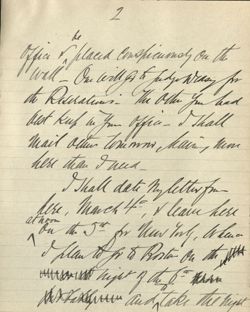 2
office & be placed conspicuously on the
wall - One will go to Judge Wesday for
the Reservations - The other you had
best keep in your office - I shall
mail others tomorrow, having more
here than I need -
I shall date my letter from
here, March 4th, & leave here
at noon on the 5th for New York, whence
I plan to go to Boston on the
night of the 6th
and take the night